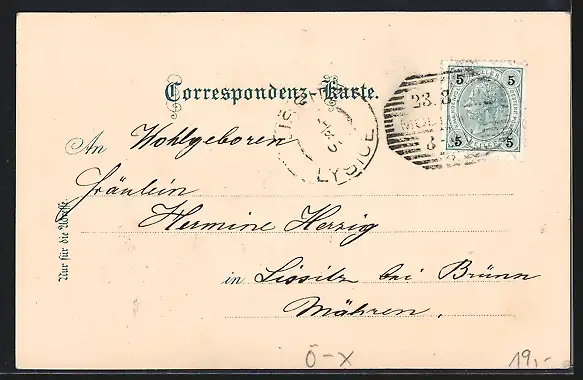 Correspondenz-Karte.
5 5
23. 3
5 5
LYSICE
An Wohlgeboren
Fräulein
Hermine Herzig
in Lissitz bei Brünn
Mähren.
Nur für die Adresse
Ö-X
19,-